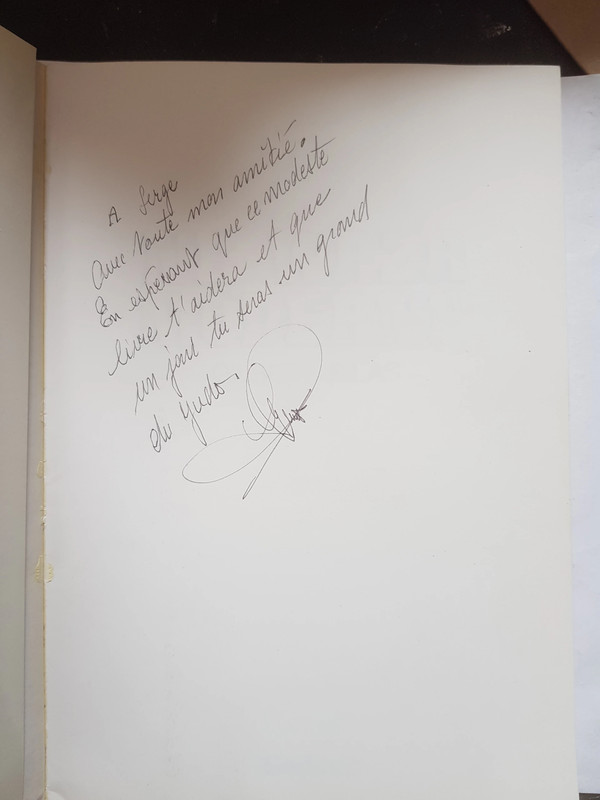 A Serge
Avec toute mon amitié.
En esperant que ce modeste
livre t'aidera et que
un jour tu seras un grand
du judo.